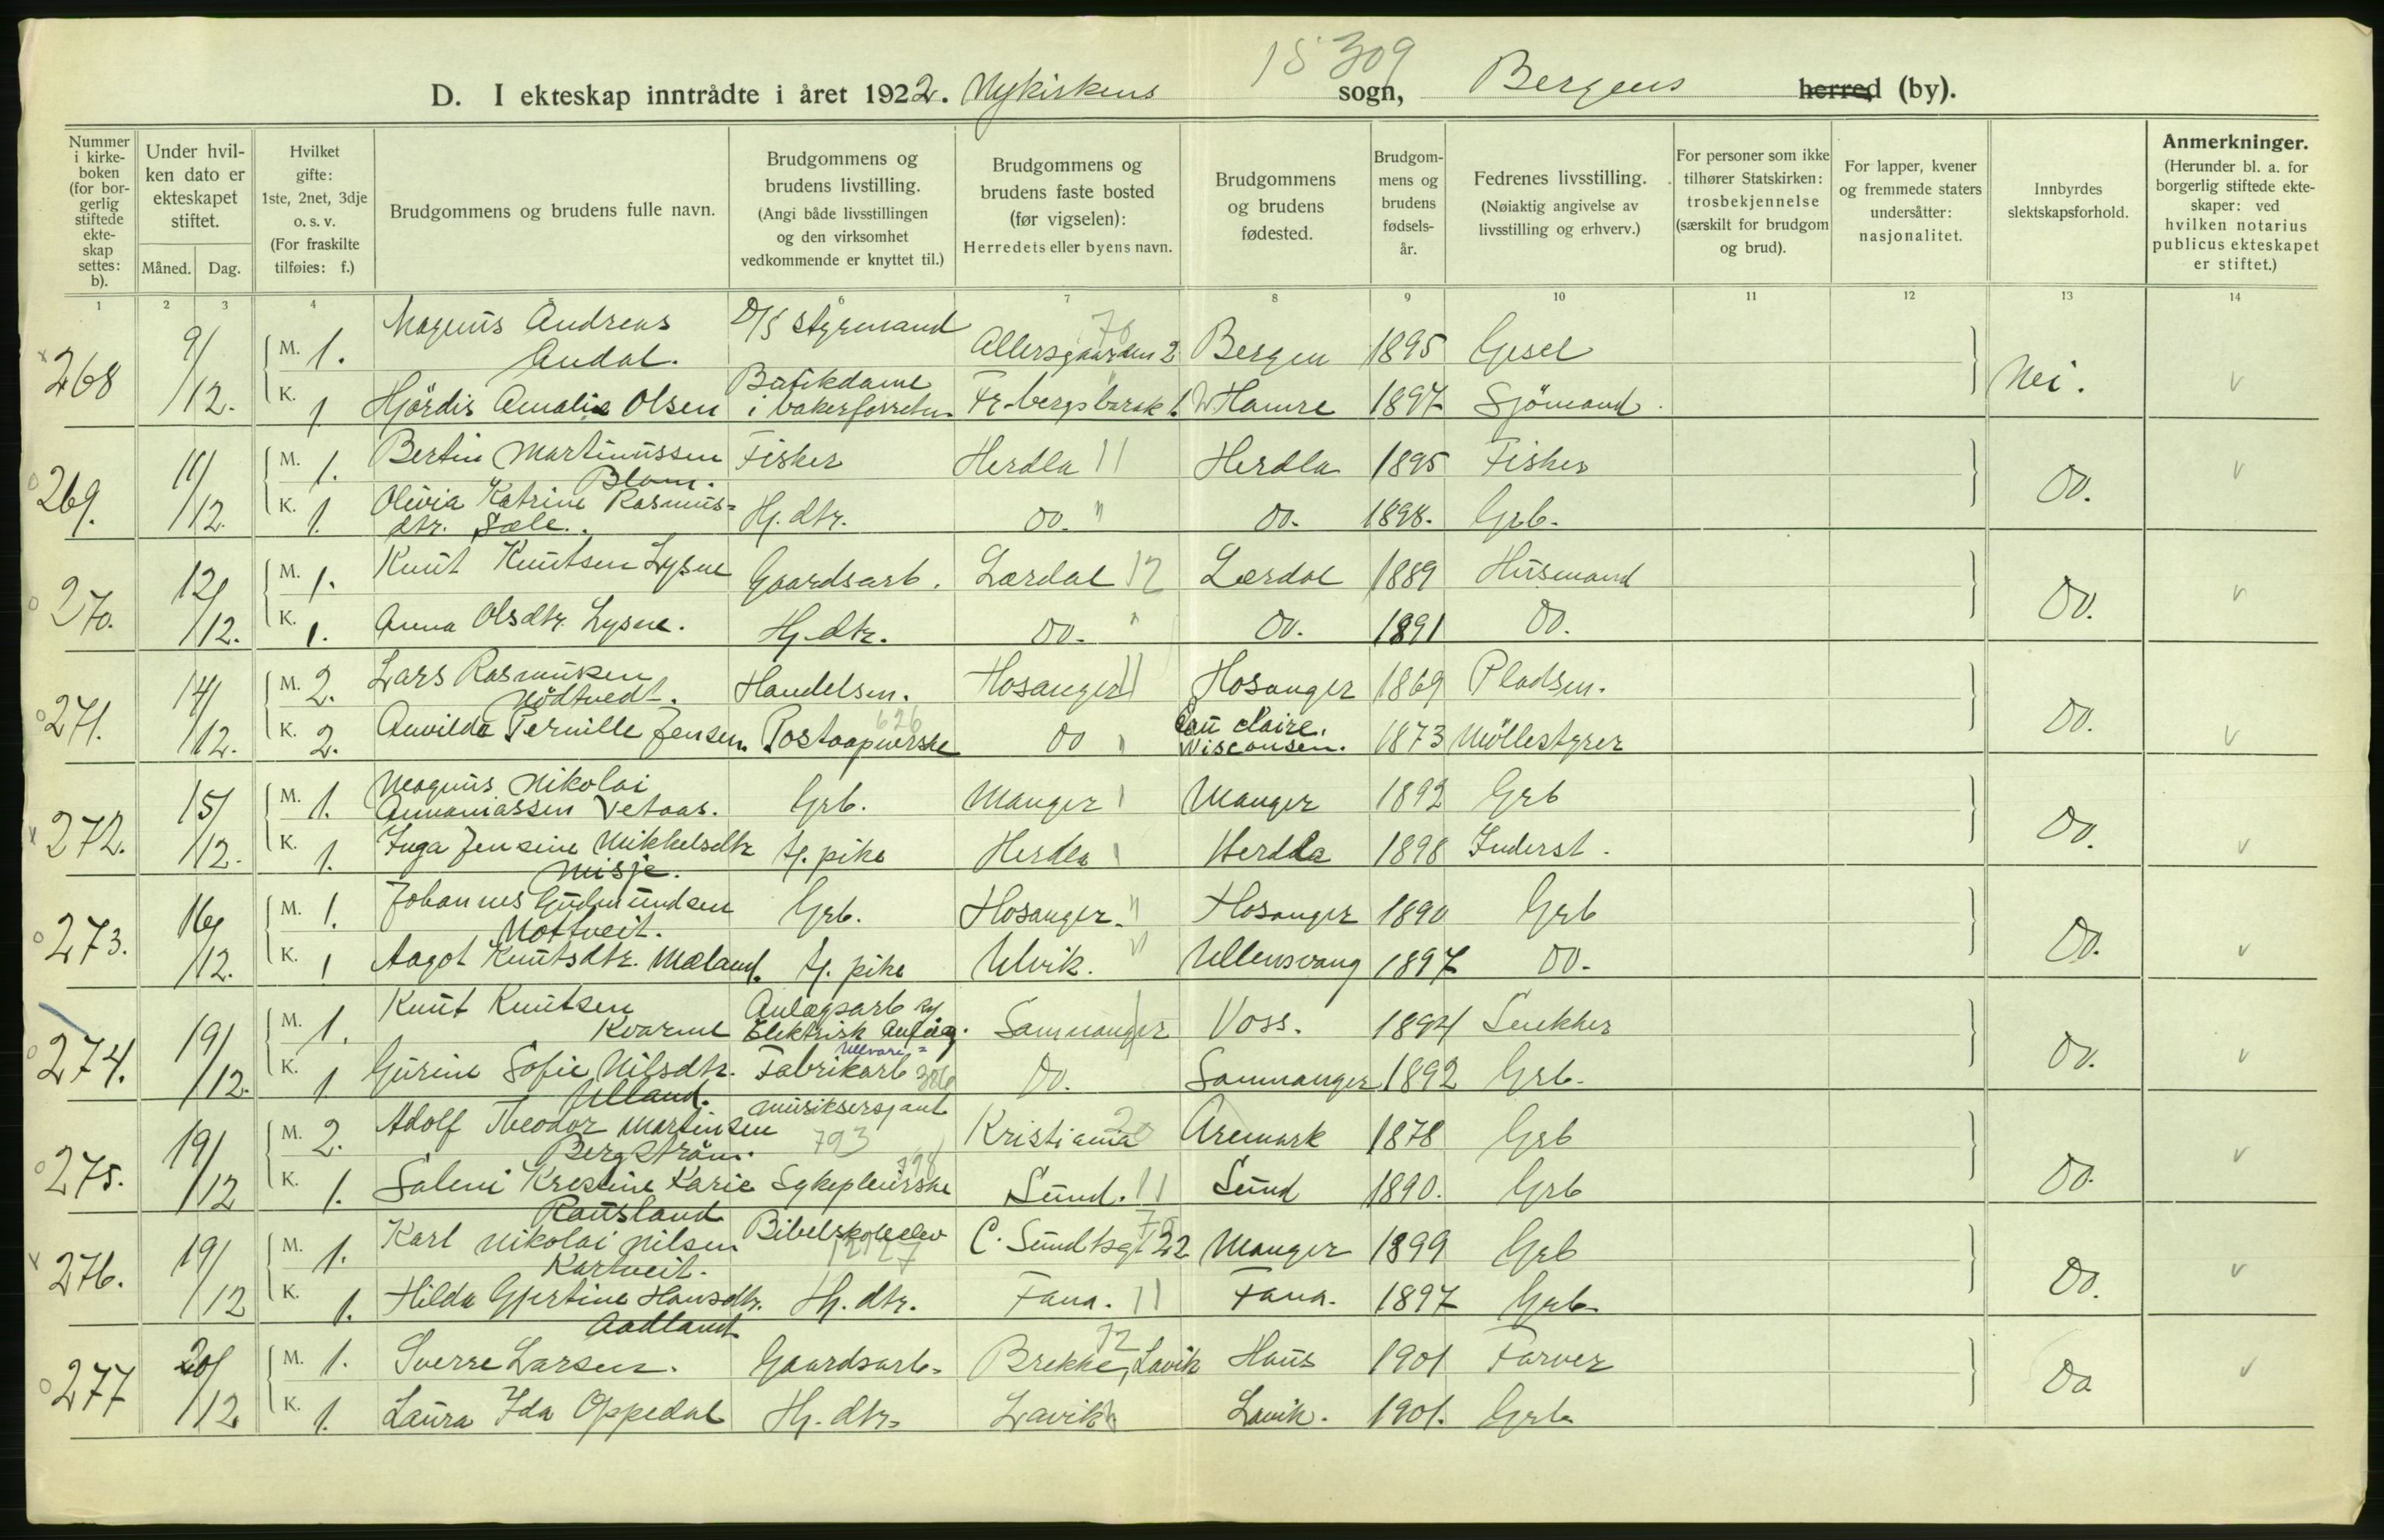 15 309
D. I ekteskap inntrådte i året 1922. Nykirkens sogn, Bergens herred (by).
Nummer i kirkeboken (for borgerlig stiftede ekteskap settes: b).
Under hvilken dato er ekteskapet stiftet.
Måned. Dag.
Hvilket gifte: 1ste, 2net, 3dje o. s. v. (For fraskilte tilføies: f.)
Brudgommens og brudens fulle navn.
Brudgommens og brudens livstilling. (Angi både livsstillingen og den virksomhet vedkommende er knyttet til.)
Brudgommens og brudens faste bosted (før vigselen): Herredets eller byens navn.
Brudgommens og brudens fødested.
Brudgommens og brudens fødselsår.
Fedrenes livsstilling. (Nøiaktig angivelse av livsstilling og erhverv.)
For personer som ikke tilhører Statskirken: trosbekjennelse (særskilt for brudgom og brud).
For lapper, kvener og fremmede staters undersåtter: nasjonalitet.
Innbyrdes slektskapsforhold.
Anmerkninger. (Herunder bl. a. for borgerlig stiftede ekteskaper: ved hvilken notarius publicus ekteskapet er stiftet.)
1 2 3 4 6 7 8 9 10 11 12 13 14
268 9/12. M. 1. Magnus Andreas Andal. D/S Styrmand Allersgaarden 2 70 Bergen 1895 Gjesel Nei. v
K. 1 Hjördis Amalie Olsen Butikdame i bakerforretn. Fr-bergs barak 1. Hamre 1897 Sjömand.
269. 11/12. M. 1. Bertin Martinussen Blom. Fisker Herdla 11 Herdla 1895 Fisker Do. v
K. 1. Olivia Katrine Rasmusdtr. Sæle. Hj. dtr. Do. " Do. 1898. Grb.
270. 12/12. M. 1. Knut Knutsen Lysne Gaardsarb. Lærdal 12 Lærdal 1889 Husmand Do. v
K. 1. Anna Olsdtr. Lysne. Hj. dtr. Do. " Do. 1891 Do.
271. 14/12. M. 2. Lars Rasmusen Nödtvedt. Handelsm. Hosanger 11 Hosanger 1869 Pladsm. Do. v
K. 2. Anvilda Pernille Jensen. Postaapnerske 626 Do " Eau claire, Wisconsen. 1873 Möllestyrer
272. 15/12. M. 1. Magnus Nikolai Annaniassen Vetaas. Grb. Manger Manger 1892 Grb Do. v
K. 1. Inga Jensine Mikkelsdtr Misje. Tj. pike Herdla Herdla 1898 Inderst.
273. 16/12. M. 1. Johannes Gudmundsen Nottveit. Grb. Hosanger. " Hosanger 1890 Grb Do. v
K. 1 Aagot Knutsdtr. Mæland. Tj. pike Ulvik. " Ullensvang 1897 Do.
274. 19/12. M. 1. Knut Knutsen Kvarme Anlægsarb ved Elektrisk Anlæg. Samnanger Voss. 1894 Snekker Do. v
K. 1 Gurine Sofie Nilsdtr. Ulland. Uldvare- Fabrikarb 386 Do. Samnanger 1892 Grb.
275. 19/12 M. 2. Adolf Theodor Martinsen Bergström. musiksersjant 793 Kristiania 20 Aremark 1878 Grb Do. v
K. 1. Salemi Kristine Karie Rausland Sykepleierske 798 Sund. 11 Sund 1890. Grb
276. 19/12 M. 1. Karl Nikolai Nilsen Kartveit. Bibelskoleelev C. Sundtsgt 22 Manger 1899 Grb Do. v
K. 1. Hilda Gjertine Hansdtr. Aadland Hj. dtr. Fana. 11 Fana. 1897 Grb
277 20/12. M. 1. Sverre Larsen. Gaardsarb. Brekke, Lavik 12 Haus 1901 Farver Do v
K. 1. Laura Ida Oppedal Hj. dtr. Lavik Lavik. 1901. Grb